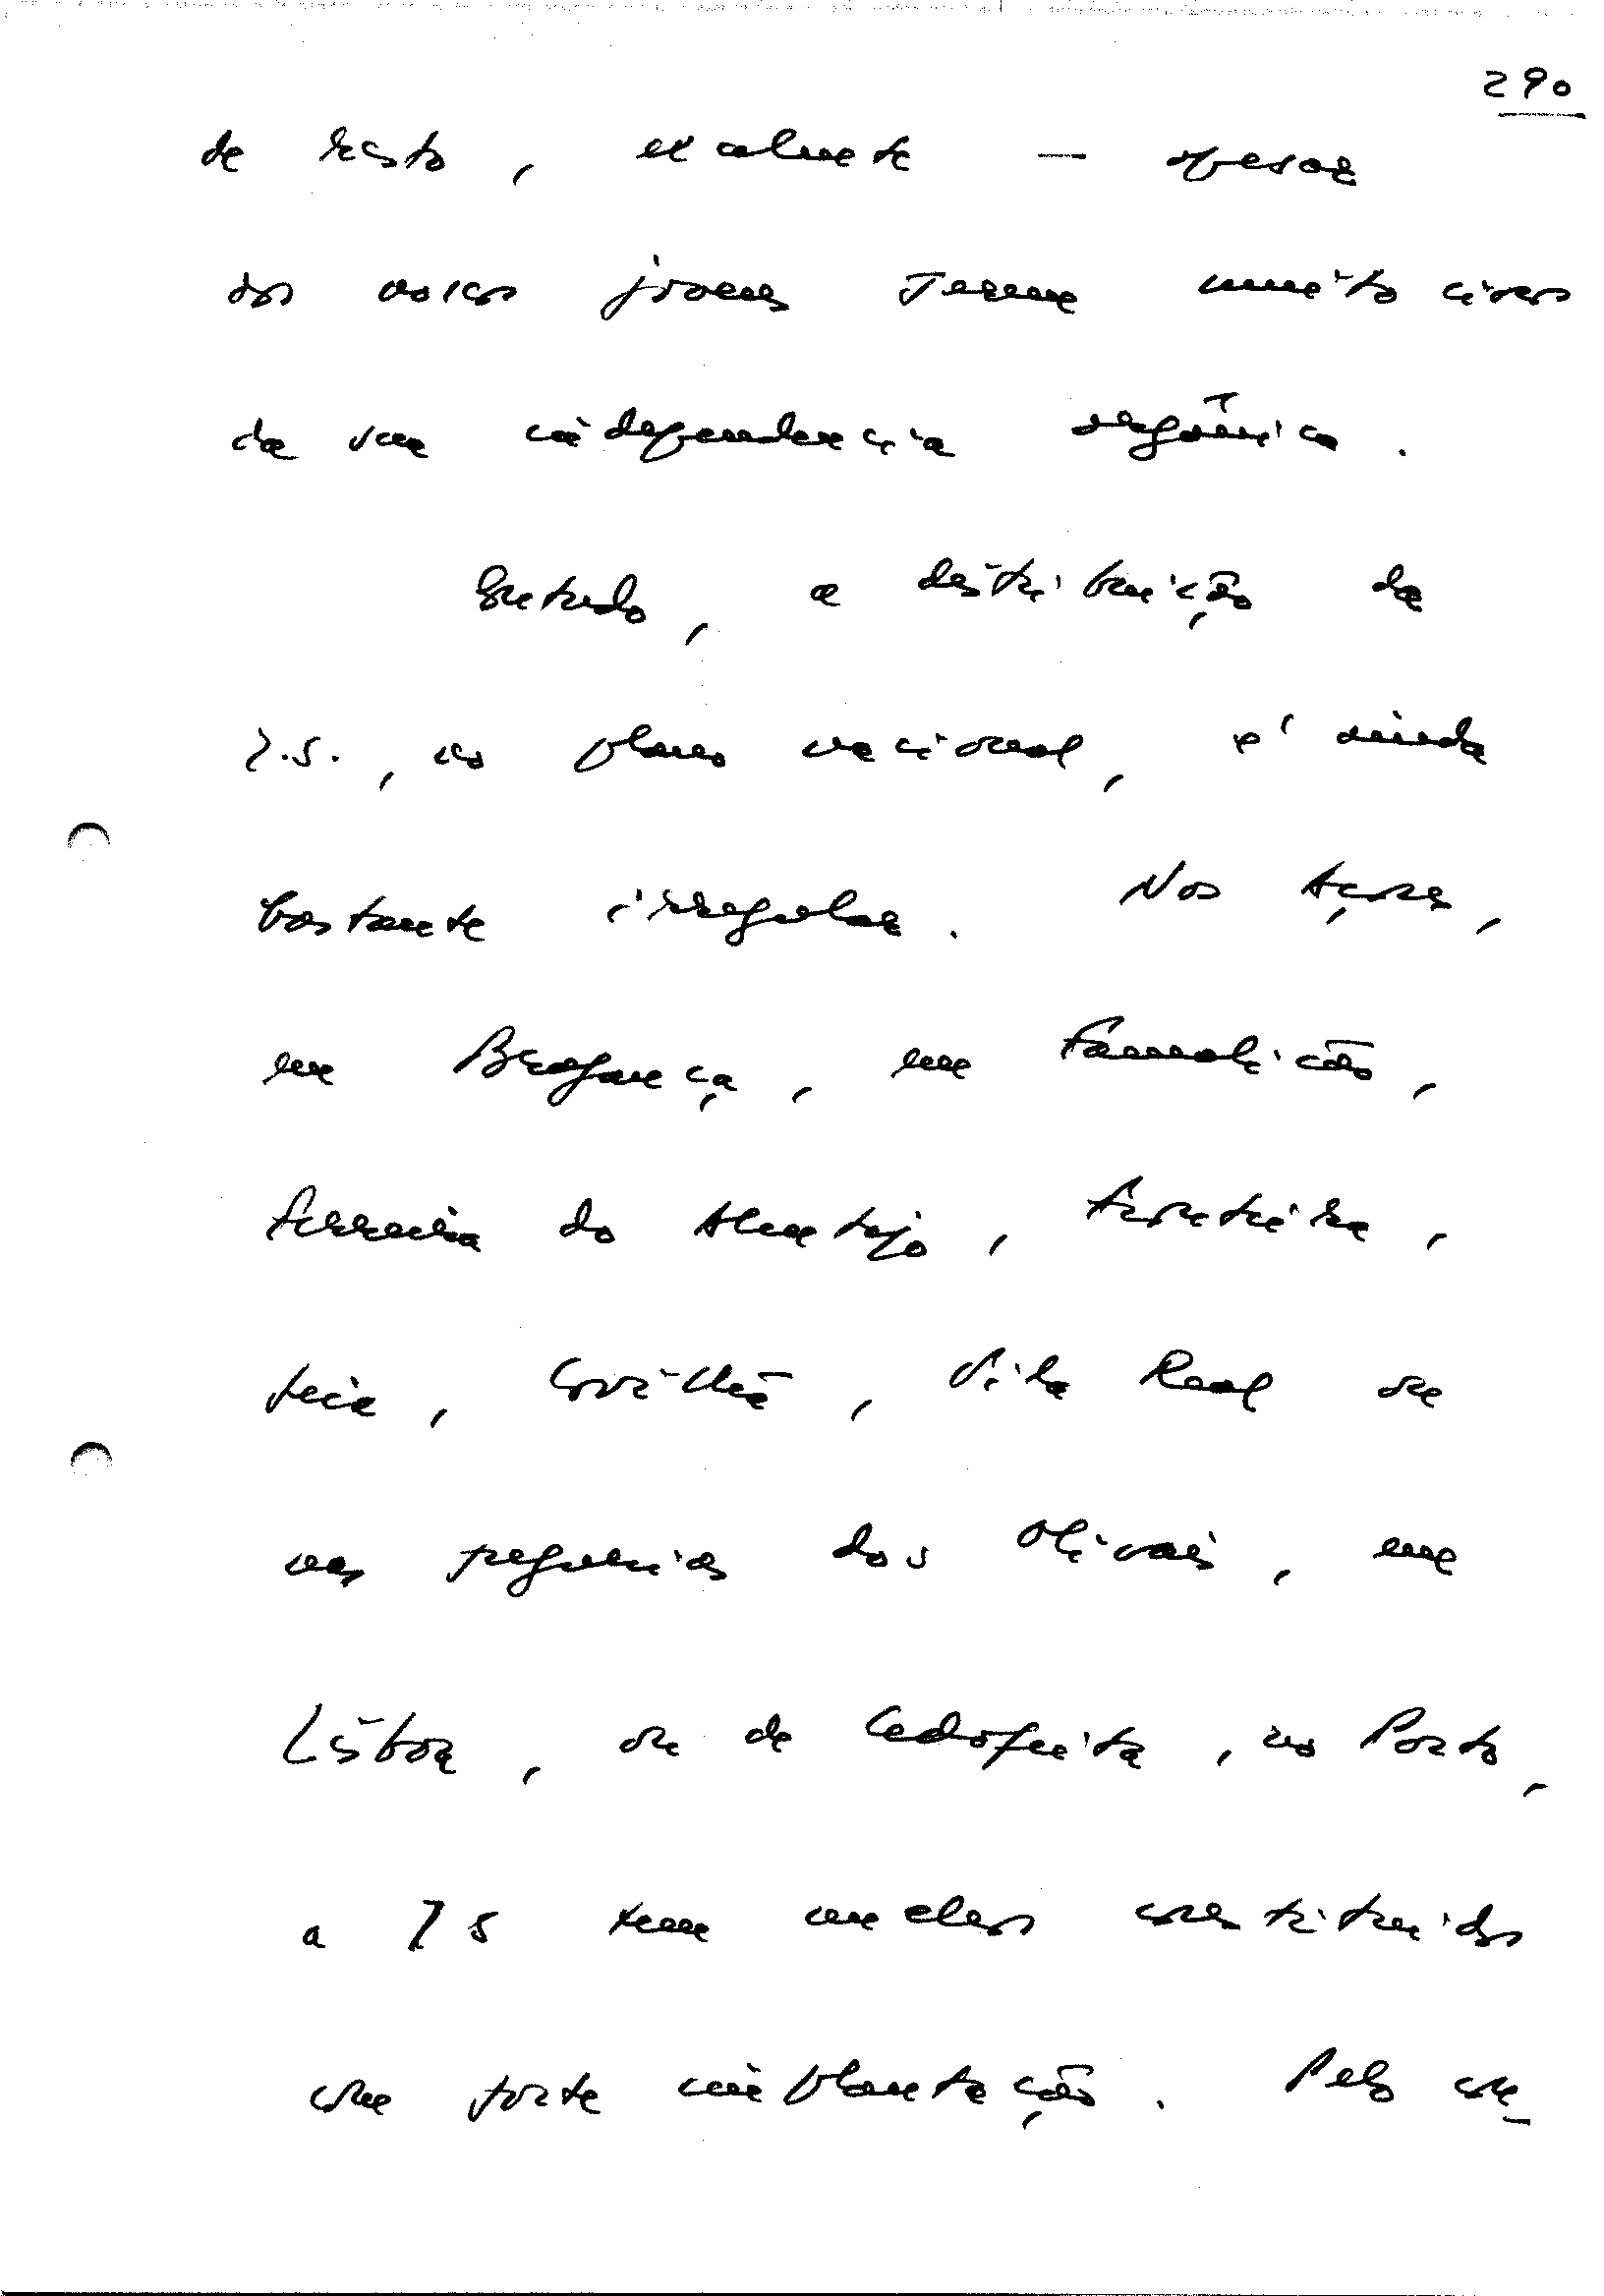 290
de resto, exalmente — apesar
dos nossos jovens serem muito ciosos
da sua independência orgânica.
Contudo, a distribuição da
J.S., no plano nacional, é ainda
bastante irregular. Nos Açores,
em Bragança, em Famalicão,
Ferreira do Alentejo,
Feira, Covilhã, Vila Real ou
nas freguesias dos Olivais, em
Lisboa, ou de Cedofeita, no Porto,
a JS tem núcleos constituídos
com forte implantação. Pelo con-